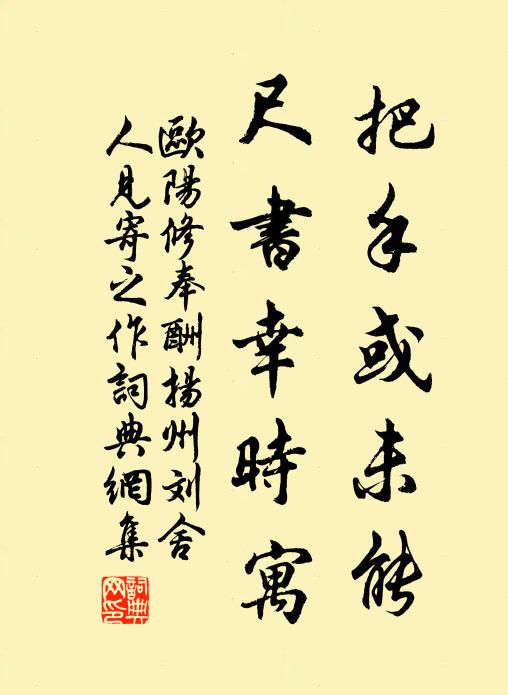 把手或未能
尺書幸時寓
歐陽修奉酬揚州刘舍
人見寄之作詞典網集
詞典网印